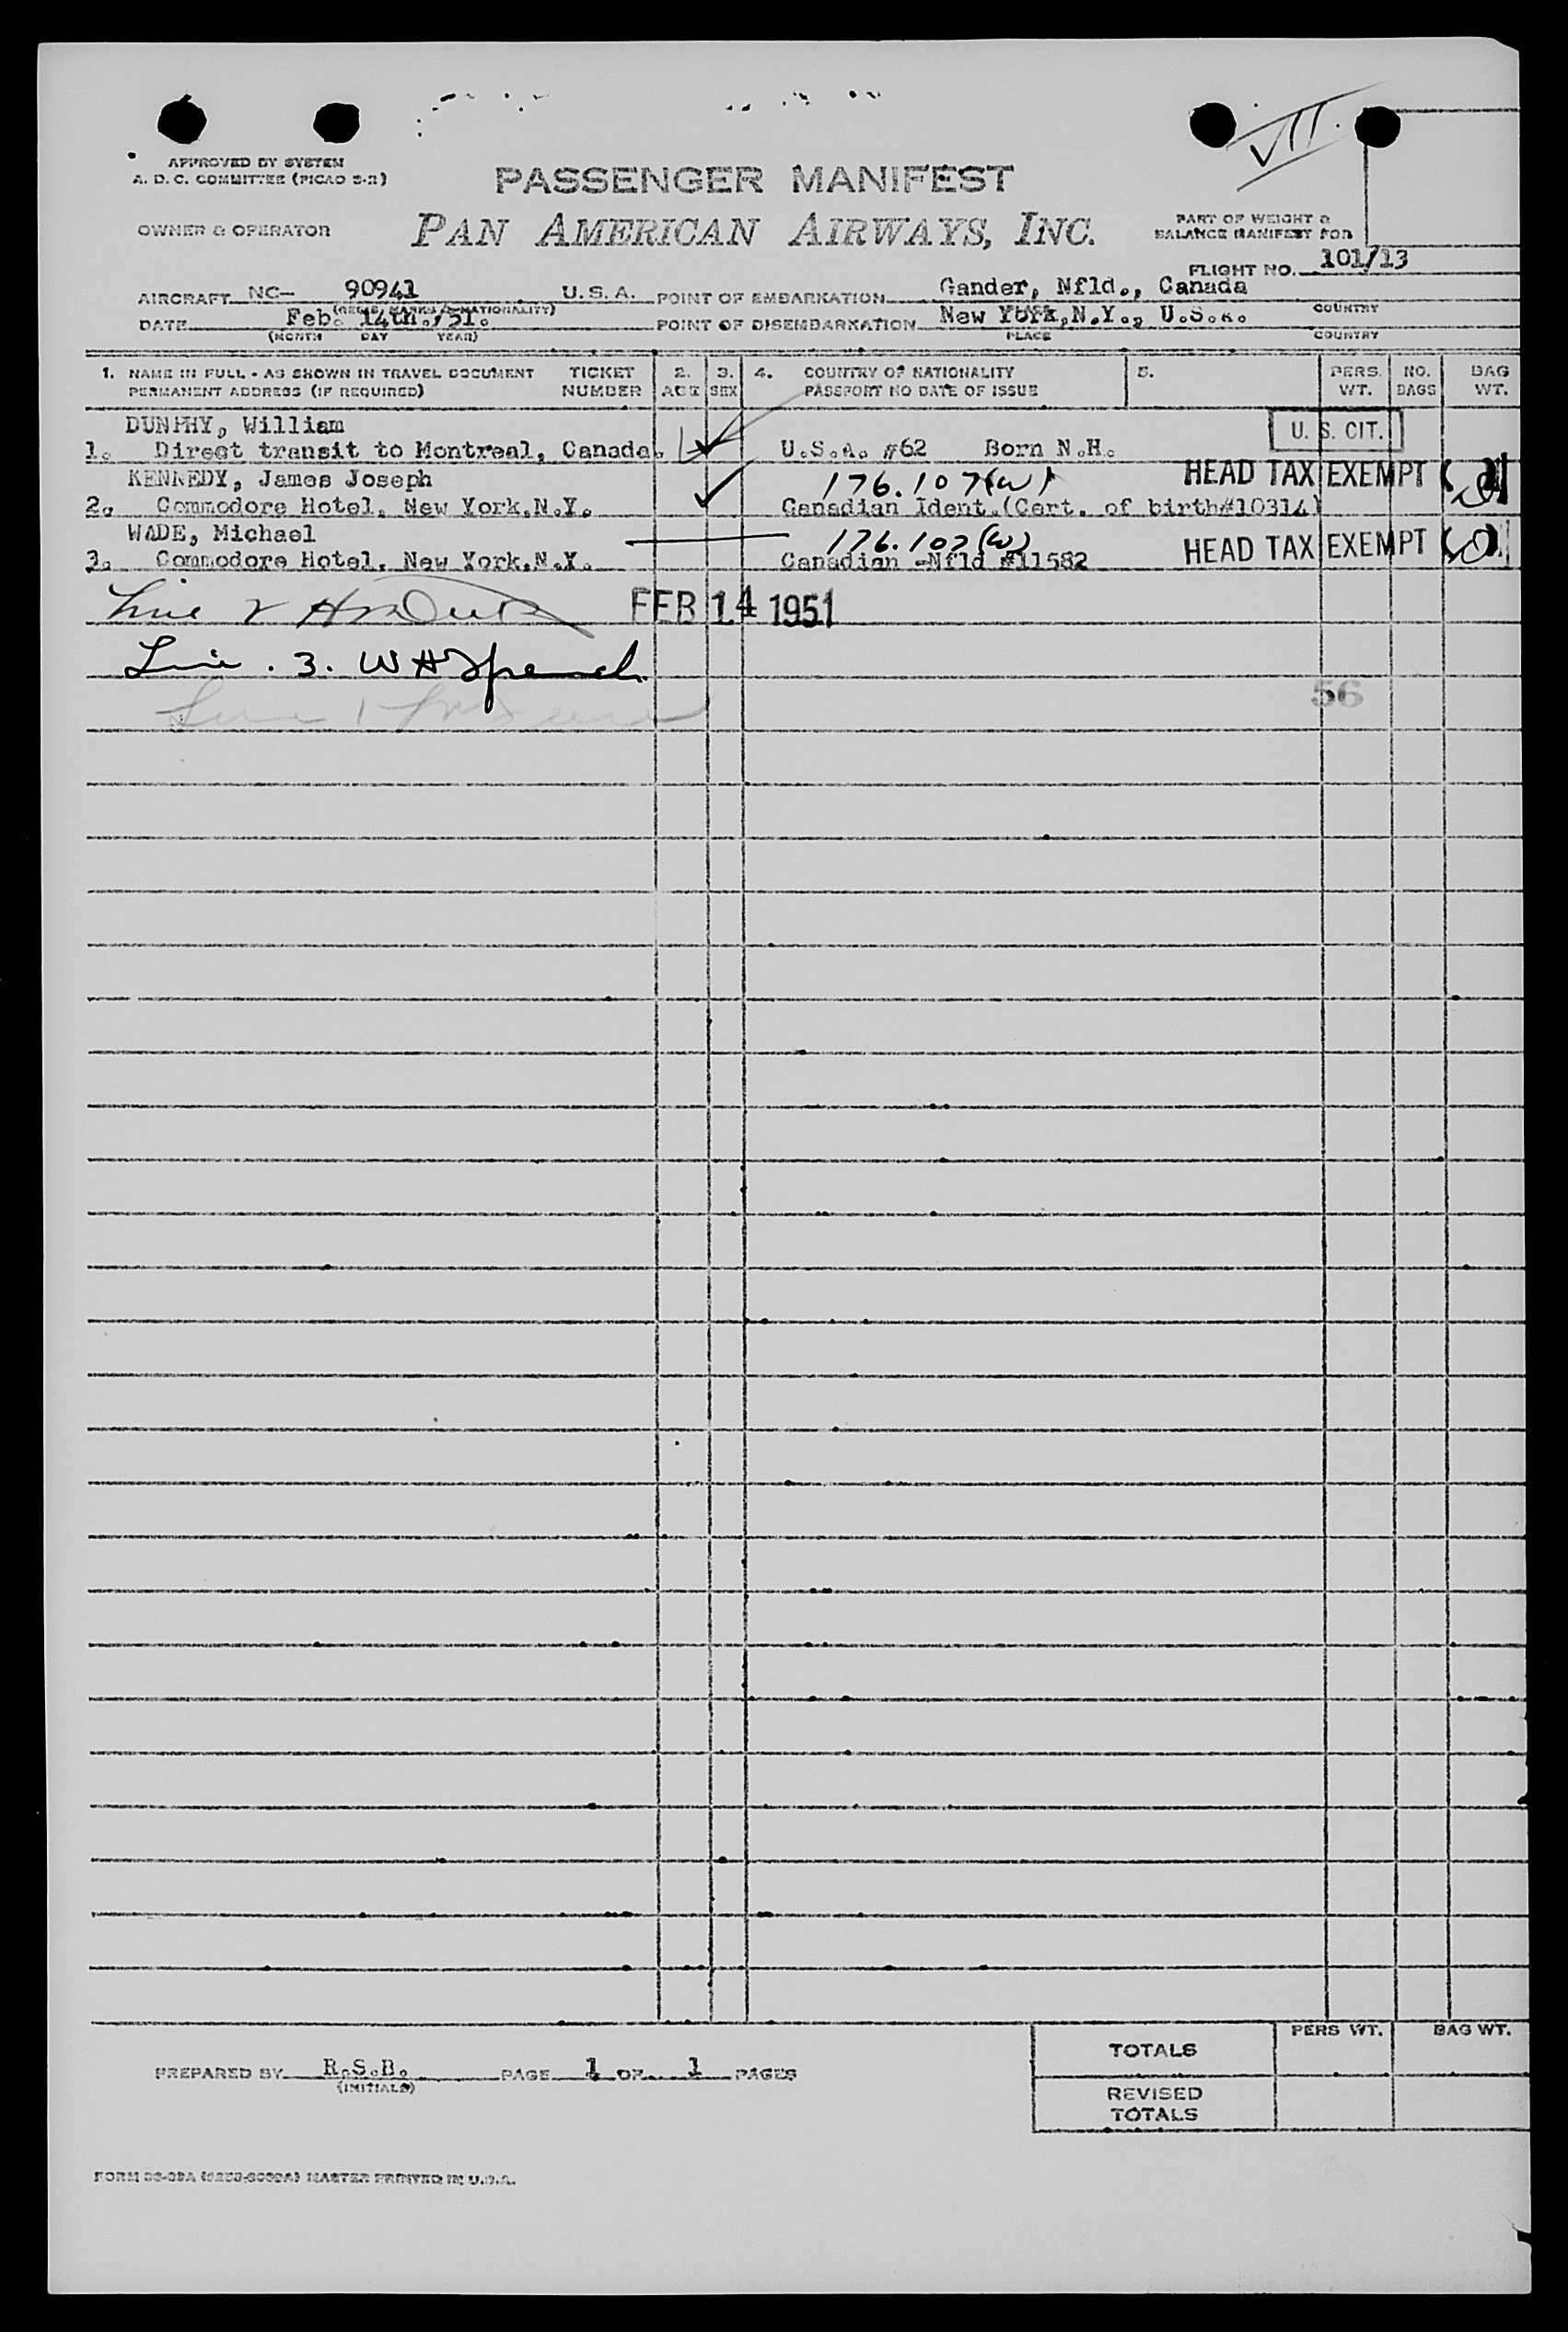 VII.
APPROVED BY SYSTEM
A. D. C. COMMITTEE (PICAO 2-2)
PASSENGER MANIFEST
OWNER & OPERATOR
PAN AMERICAN AIRWAYS, INC.
PART OF WEIGHT &
BALANCE MANIFEST FOR
FLIGHT NO. 101/13
AIRCRAFT NC- 90941 U.S.A. POINT OF EMBARKATION Gander, Nfld., Canada
(REGIS. MARKS & NATIONALITY) COUNTRY
DATE Feb. 14th./51. POINT OF DISEMBARKATION New York,N.Y., U.S.A.
(MONTH DAY YEAR) PLACE COUNTRY
1. NAME IN FULL - AS SHOWN IN TRAVEL DOCUMENT TICKET 2. 3. 4. COUNTRY OF NATIONALITY 5. PERS. NO. BAG
PERMANENT ADDRESS (IF REQUIRED) NUMBER AGE SEX PASSPORT NO DATE OF ISSUE WT. BAGS WT.
DUNPHY, William U. S. CIT.
1. Direct transit to Montreal, Canada. U.S.A. #62 Born N.H.
KENNEDY, James Joseph 176.107(W) HEAD TAX EXEMPT
2. Commodore Hotel, New York,N.Y. Canadian Ident.(Cert. of birth#10314)
WADE, Michael 176.107(W) HEAD TAX EXEMPT
3. Commodore Hotel, New York,N.Y. Canadian -Nfld #11582
Line 2 FEB 14 1951
Line . 3. W H
56
Line 1
PREPARED BY R.S.B. PAGE 1 OF 1 PAGES
(INITIALS)
PERS WT. BAG WT.
TOTALS
REVISED
TOTALS
MASTER PRINTED IN U.S.A.